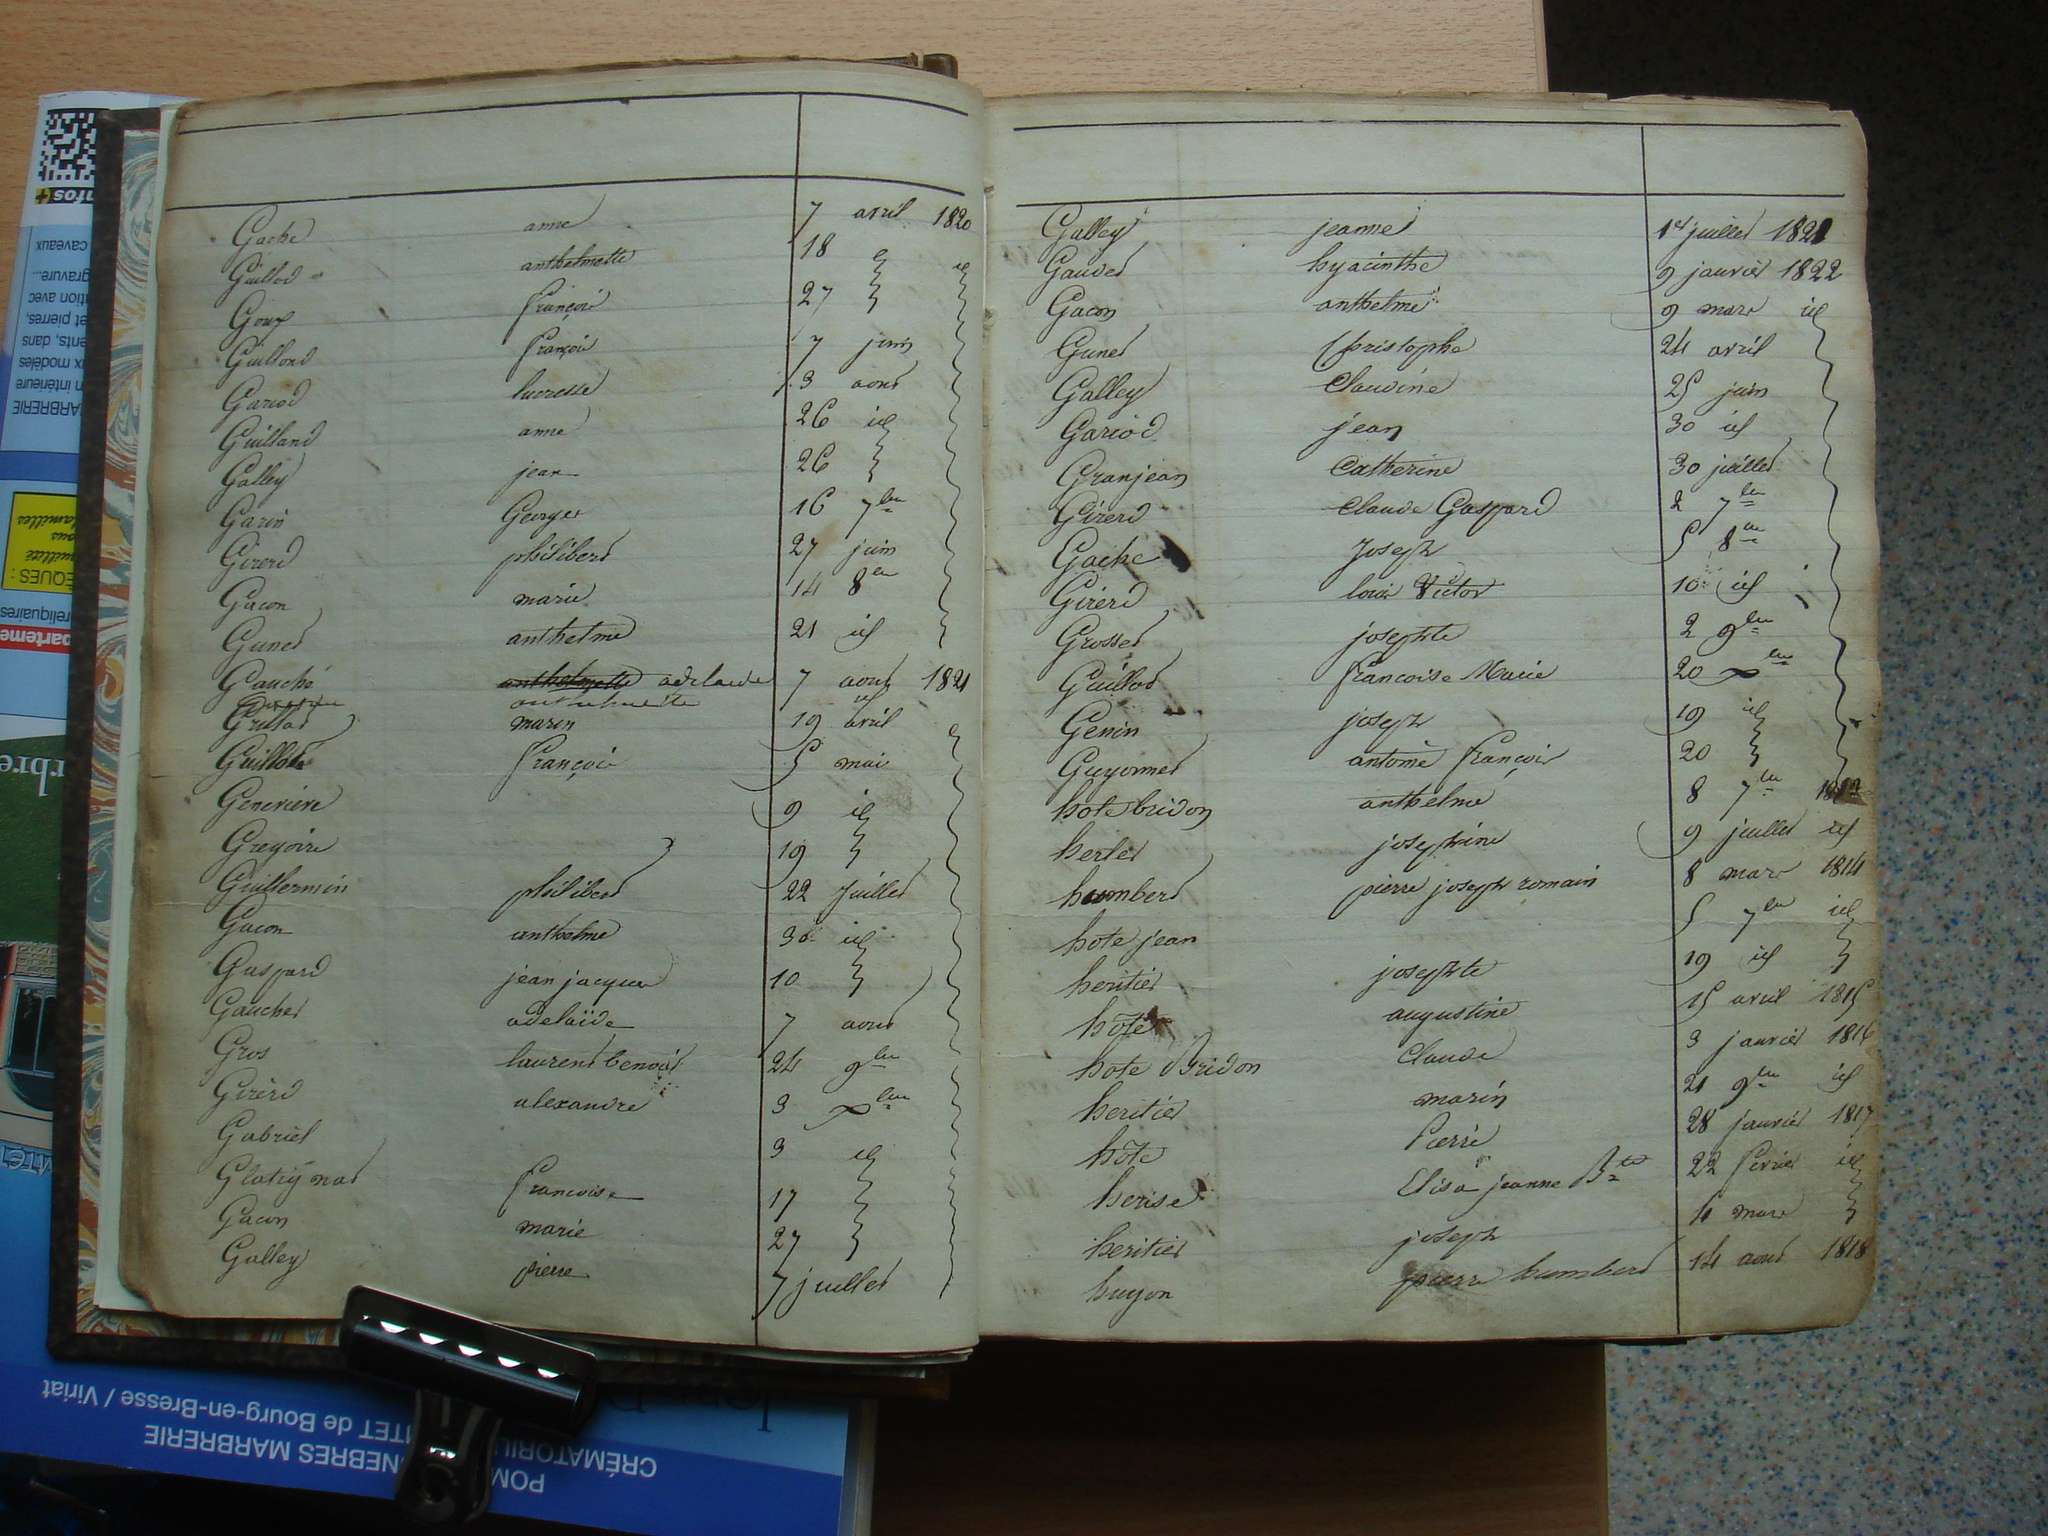 Gache anne 7 avril 1820
Guillod anthelmette 18
Goux françois 27
Guilland françois 7 juin
Gariod lucresse 3 aout
Guilland anne 26 id
Galley jean 26
Garin Georges 16 7bre
Girerd philibert 27 juin
Gacon marie 14 8bre
Gunet anthelme 21 id
Gauché anthelmette adelaide 7 aout 1821
marin 19 avril
Guillot françois 5 mai
Genevieve 9 id
Gregoire 19
Guillermin philibert 22 Juillet
Gacon anthelme 30 id
Gaspard jean jacques 10
Gaucher adelaïde 7 aout
Gros laurent benoit 24 9bre
Girerd alexandre 3 xbre
Gabriel 3 id
francoise 17
Gacon marie 27
Galley pierre 7 juillet
Galley jeanne 1er juillet 1821
Gauvet hyacinthe 9 janvier 1822
Gacon anthelme 9 mars id
Gunet Christophe 24 avril
Galley Claudine 25 juin
Gariod jean 30 id
Granjean Catherine 30 juillet
Girerd Claude Gaspard 2 7bre
Gache Joseph 5 8bre
Girerd louis Victor 10 id
Grosset josephte 2 9bre
Guillod francoise Marie 20 xbre
Genin joseph 19 id
Guyonnet antoine françois 20
hote bridon anthelme 8 7bre
herlet josephine 9 juillet id
humbert pierre joseph romain 8 mars 1814
hote jean 5 7bre id
heritier josephte 19 id
hôte augustine 15 avril 1815
hote Bridon Claude 3 janvier 1816
heritier marin 21 9bre id
hôte Pierre 28 janvier 1817
herise Elisa jeanne Bte 22 fevrier id
heritier joseph 4 mars
huyon pierre humbert 14 aout 1818
infos +
caveaux
gravure...
ation avec
et pierres,
ents, dans
ux modèles
n intérieure
MARBRERIE
reliquaires
CRÉMATORI
NÈBRES MARBRERIE
TET de Bourg-en-Bresse / Viriat